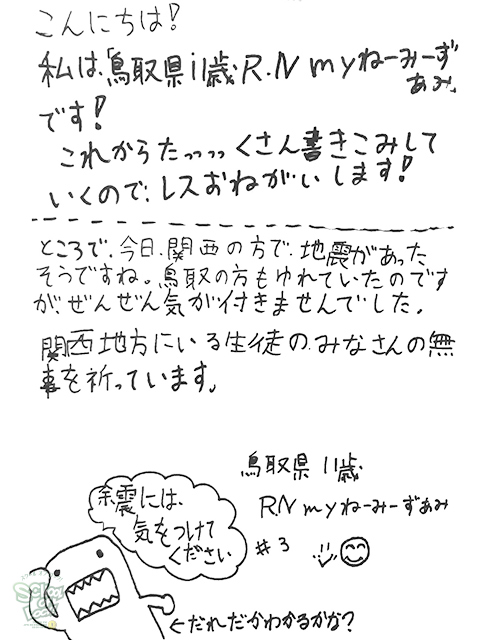 こんにちは!
私は、「鳥取県11歳R.N myねーみーず
あみ」
です!
これからたっっっっくさん書きこみして
いくので、レスおねがいします!
ところで、今日、関西の方で、地震があった
そうですね。鳥取の方もゆれていたのです
が、ぜんぜん気が付きませんでした。
関西地方にいる生徒の、みなさんの無
事を祈っています。
鳥取県 11歳
R.N myねーみーずあみ
#3
余震には、
気をつけて
ください
←だれだかわかるかな?